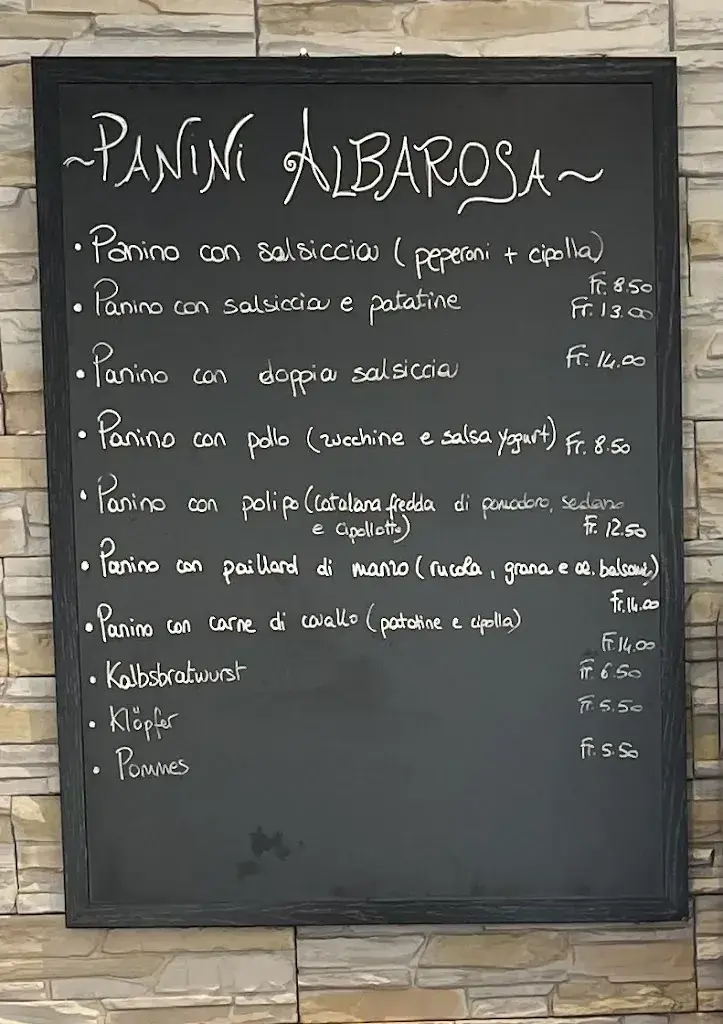 ~PANINI ALBAROSA~
• Panino con salsiccia (peperoni + cipolla)
Fr. 8.50
• Panino con salsiccia e patatine Fr. 13.00
• Panino con doppia salsiccia Fr. 14.00
• Panino con pollo (zucchine e salsa yogurt) Fr. 8.50
• Panino con polipo (catalana fredda di pomodoro, sedano
e cipollotto) Fr. 12.50
• Panino con paillard di manzo (rucola, grana e ac. balsamic)
Fr. 14.00
• Panino con carne di cavallo (patatine e cipolla)
Fr. 14.00
• Kalbsbratwurst Fr. 6.50
• Klöpfer Fr. 5.50
• Pommes Fr. 5.50